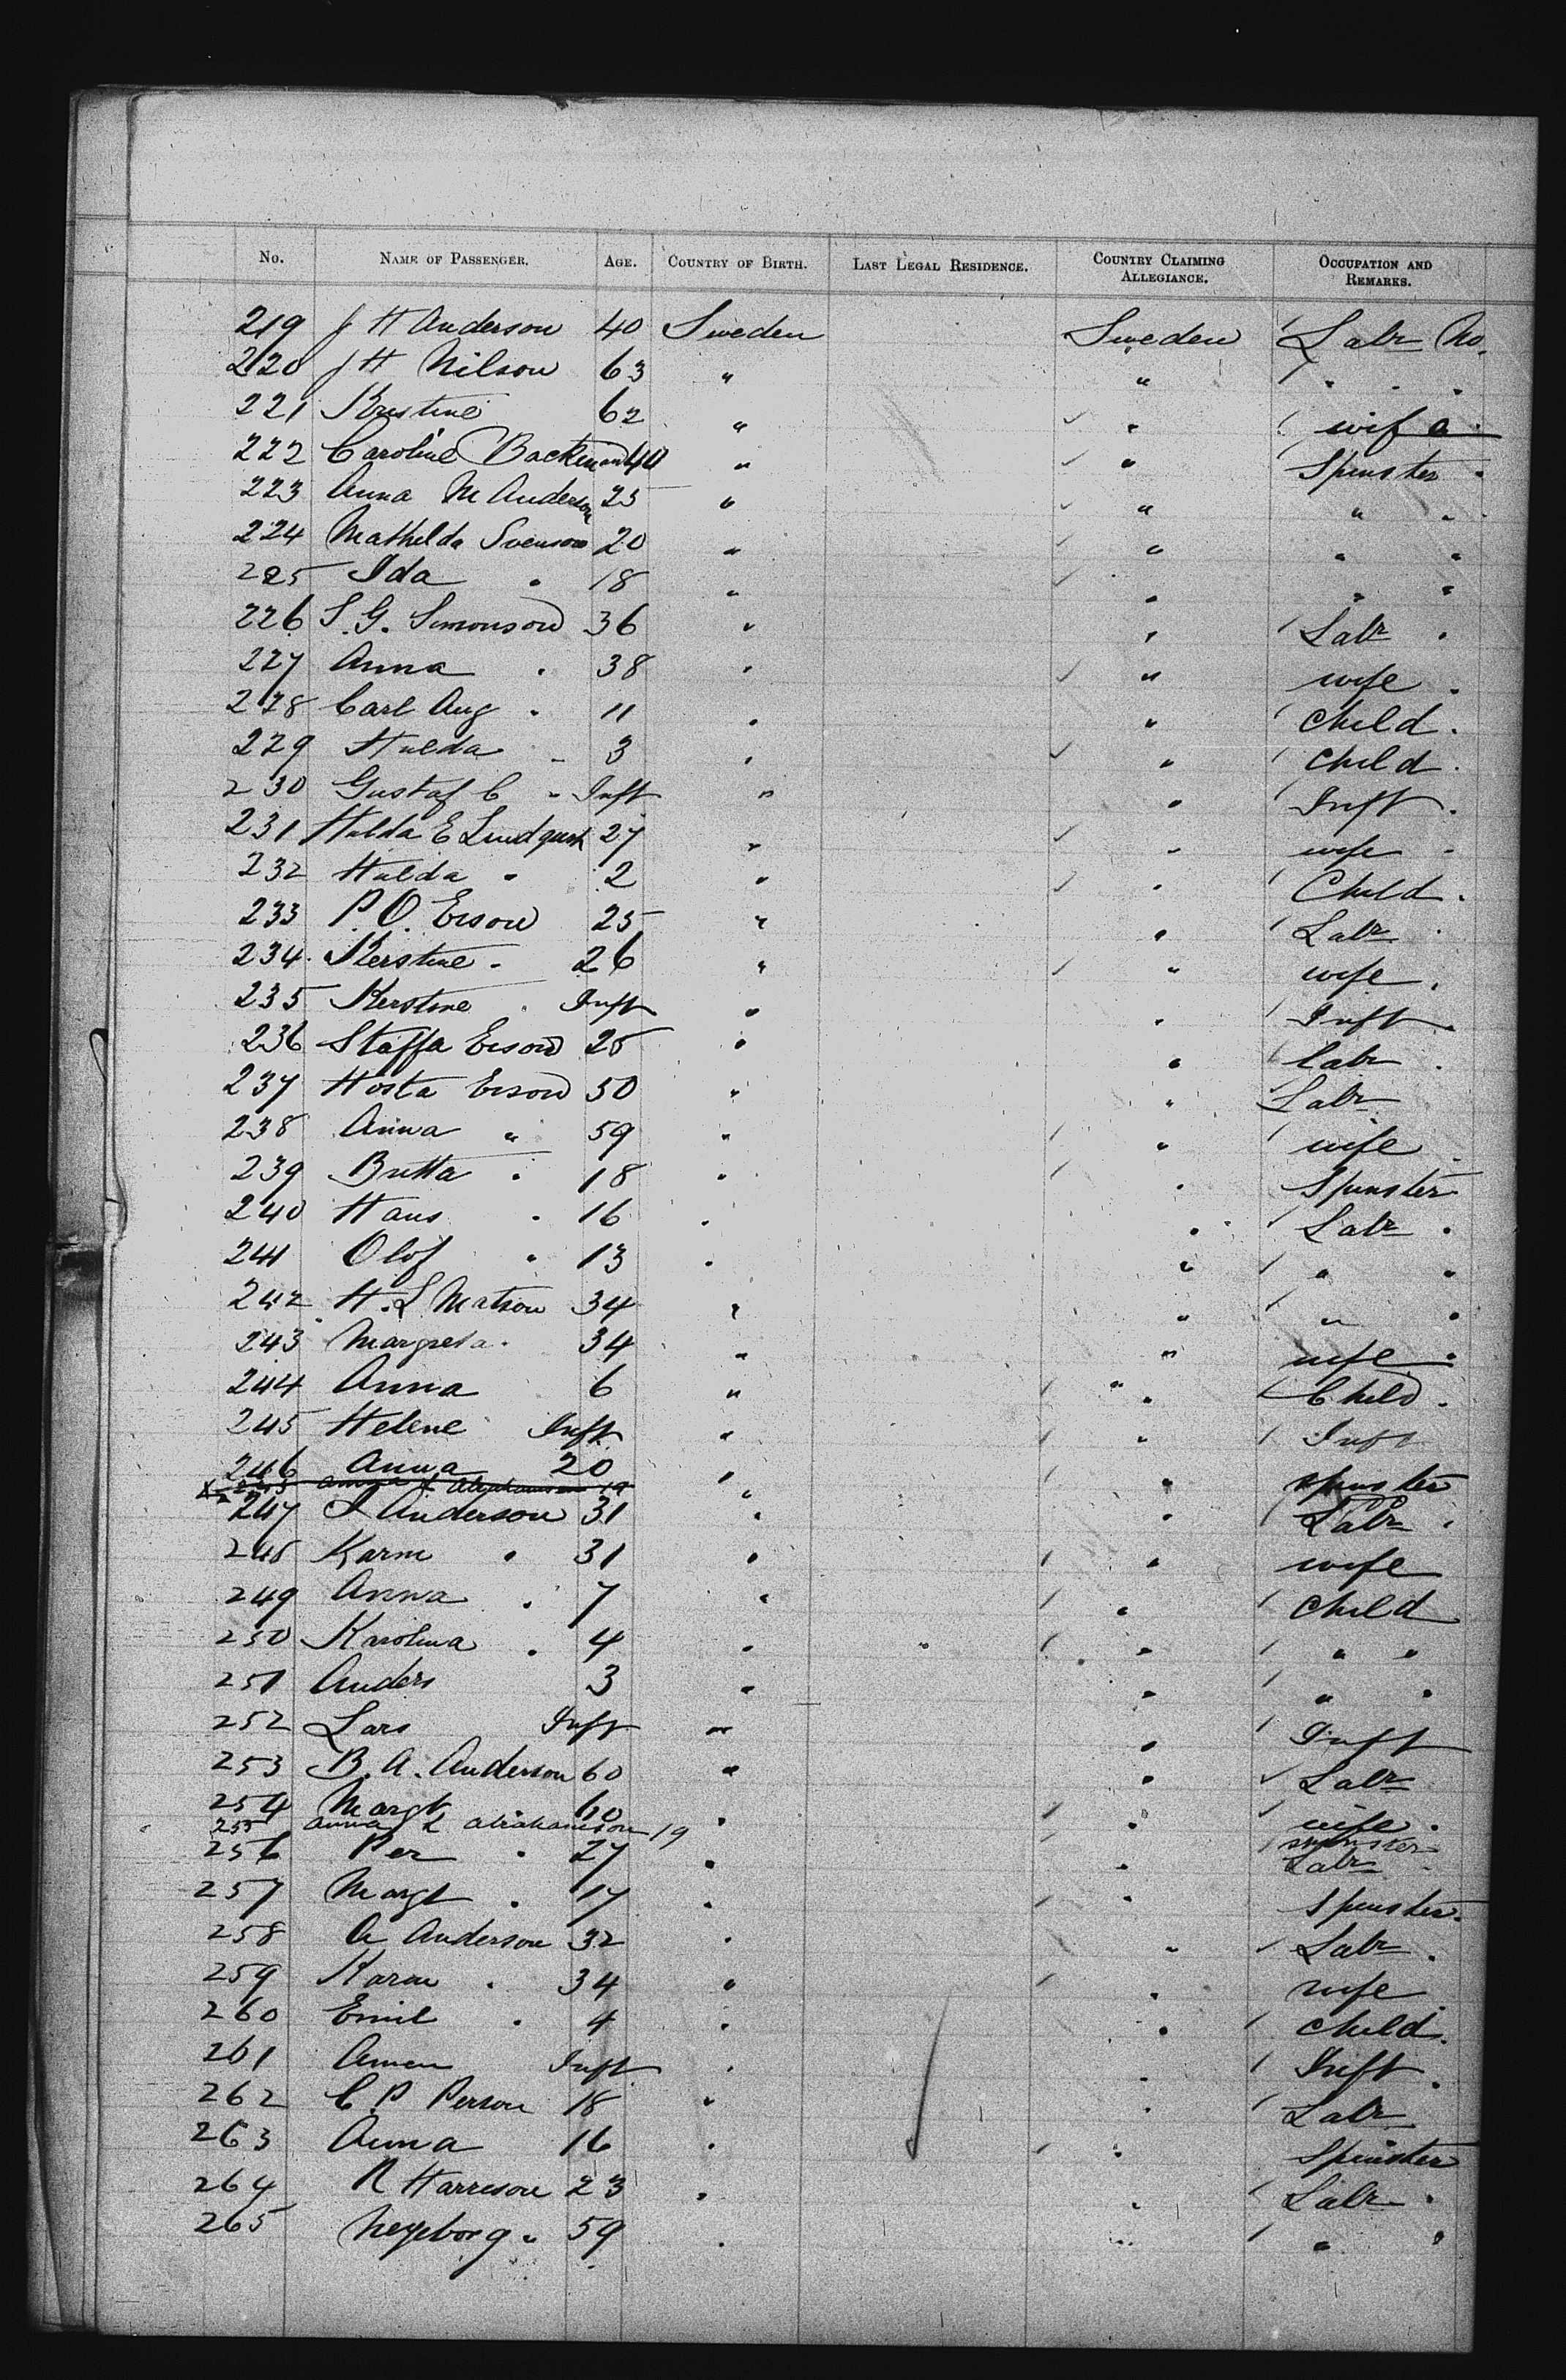 No. NAME OF PASSENGER. AGE. COUNTRY OF BIRTH. LAST LEGAL RESIDENCE. COUNTRY CLAIMING ALLEGIANCE. OCCUPATION AND REMARKS.
219 J H Anderson 40 Sweden Sweden Labr No.
220 J H Nilson 63 " " " "
221 Kristine 62 " " wife "
222 Caroline Backman 40 " " Spinster "
223 Anna M Anderson 25 " " " "
224 Mathelda Svenson 20 " " " "
225 Ida " 18 " " " "
226 S. G. Simonson 36 " " Labr "
227 Anna " 38 " " wife "
228 Carl Aug " 11 " " Child "
229 Hulda " 3 " " Child "
230 Gustaf C " Inft " " Inft "
231 Hulda E Lindquist 27 " " wife "
232 Hulda " 2 " " Child "
233 P. O. Erson 25 " " Labr "
234 Kerstine " 26 " " wife "
235 Kerstine " Inft " " Inft "
236 Staffa Erson 25 " " Labr "
237 Hosta Erson 50 " " Labr
238 Anna " 59 " " wife "
239 Britta " 18 " " Spinster
240 Hans " 16 " " Labr "
241 Olof " 13 " " " "
242 H. L Matson 34 " " " "
243 Margreta " 34 " " wife "
244 Anna 6 " " Child "
245 Helene Inft " " Inft
246 Anna 20 " " Spinster
Anna L Abrahamson 19 "
247 I Anderson 31 " " Labr "
248 Karin " 31 " " wife
249 Anna " 7 " " Child
250 Karolina " 4 " " " "
251 Anders 3 " " " "
252 Lars Inft " " Inft
253 B. A. Anderson 60 " " Labr
254 Margt 60 " " wife "
255 Anna L Abrahamson 19 Spinster
256 Per " 27 " " Labr "
257 Margt " 17 " " Spinster "
258 A Anderson 32 " " Labr "
259 Karin " 34 " " wife "
260 Emil " 4 " " Child "
261 Inft " " Inft "
262 C. P Person 18 " " Labr
263 Anna 16 " " Spinster
264 N Harreson 23 " " Labr "
265 59 " " " "